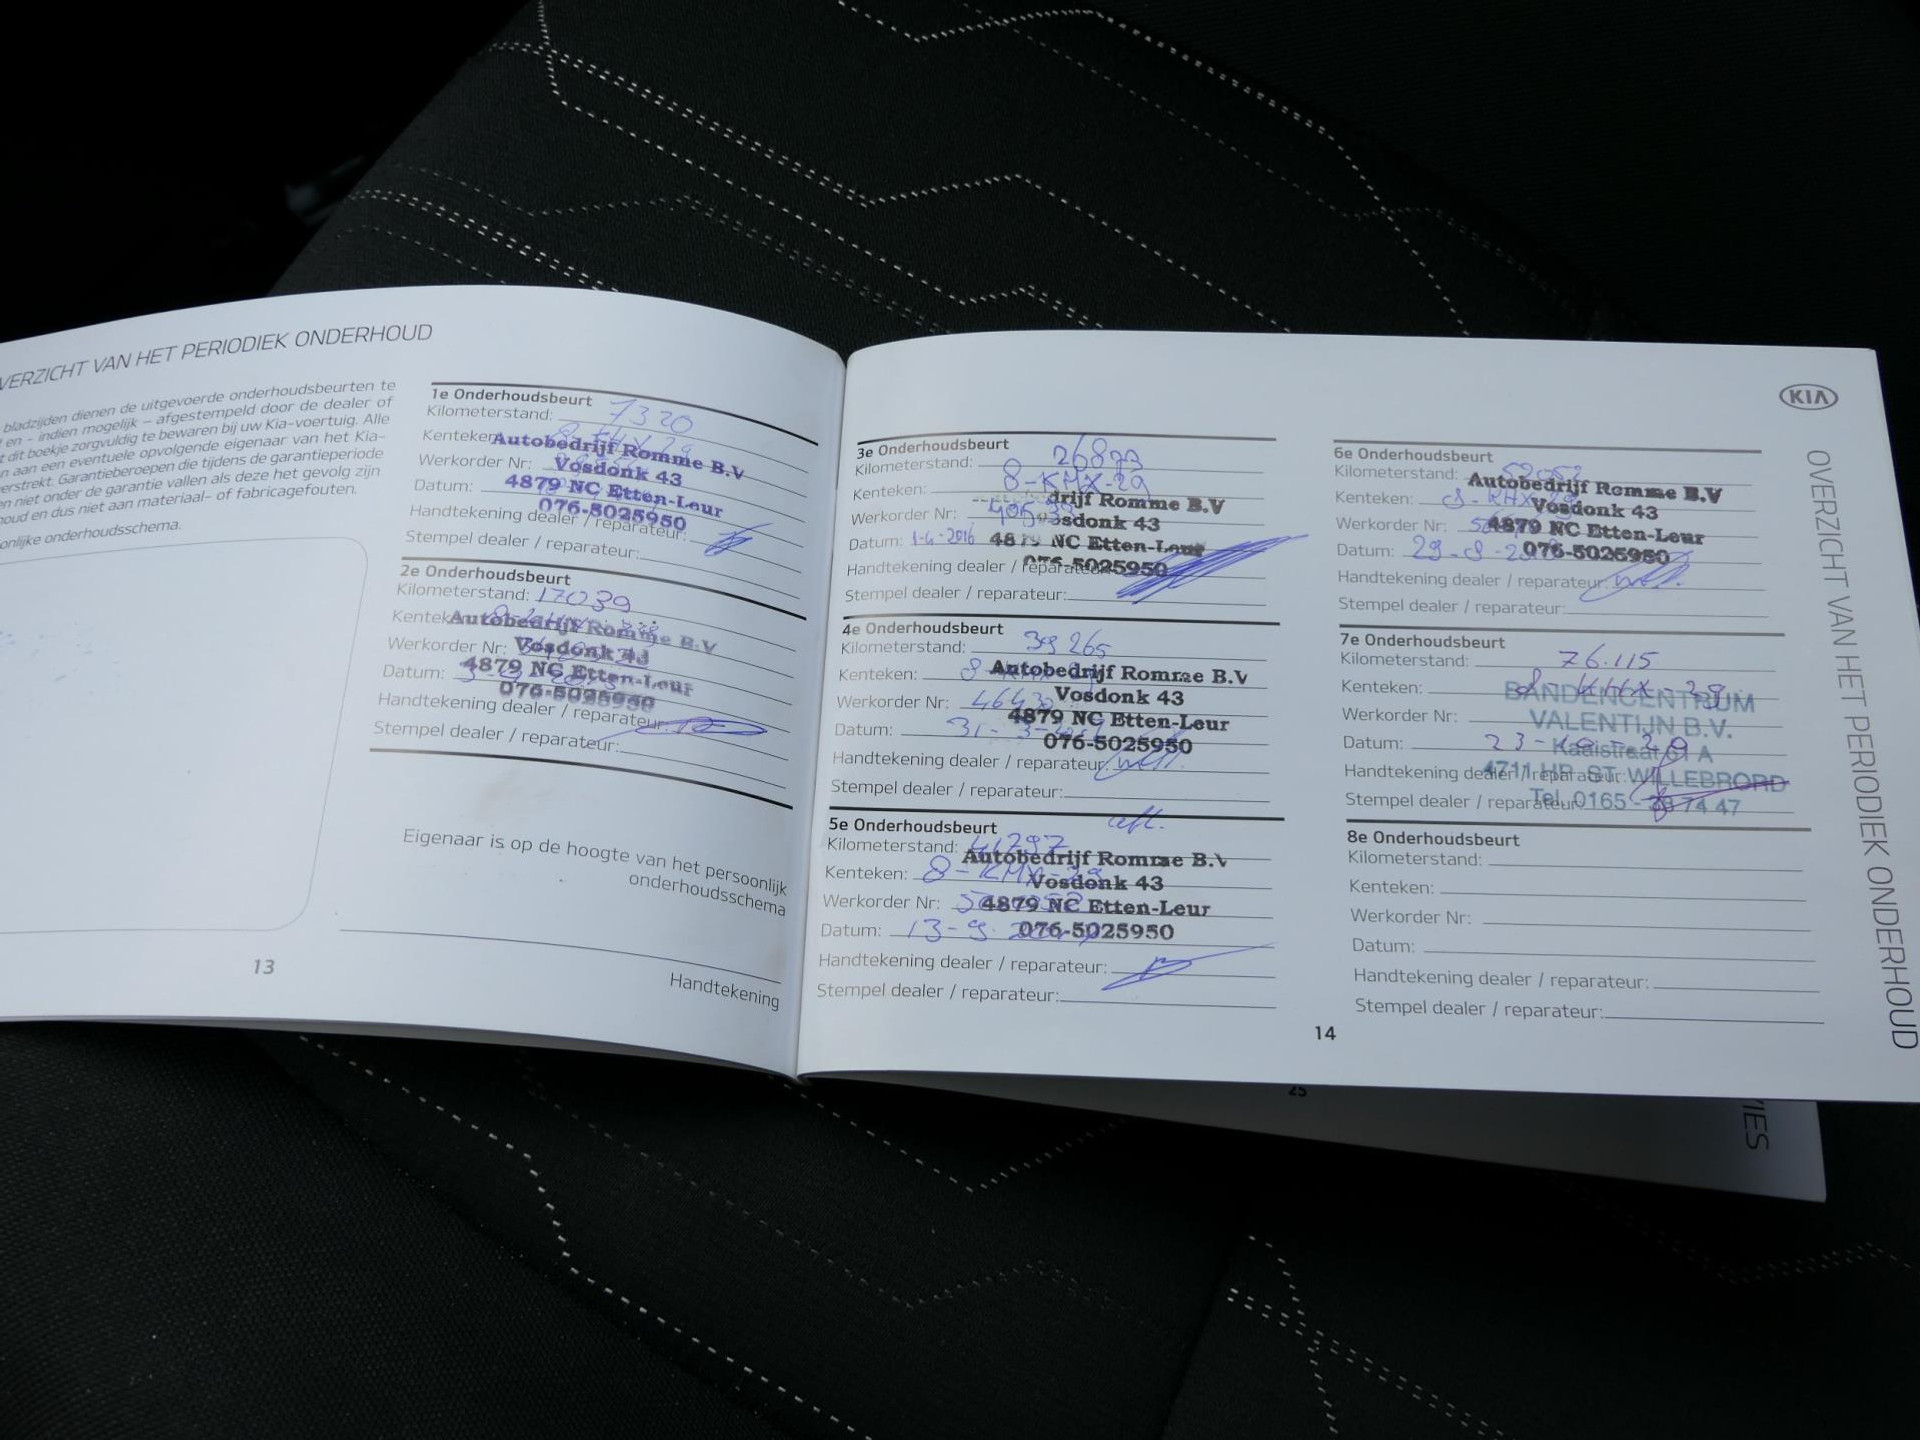 VERZICHT VAN HET PERIODIEK ONDERHOUD
bladzijden dienen de uitgevoerde onderhoudsbeurten te
en – indien mogelijk – afgestempeld door de dealer of
t dit boekje zorgvuldig te bewaren bij uw Kia-voertuig. Alle
n aan een eventuele opvolgende eigenaar van het Kia-
erstrekt. Garantieberoepen die tijdens de garantieperiode
en niet onder de garantie vallen als deze het gevolg zijn
houd en dus niet aan materiaal- of fabricagefouten.
onlijke onderhoudsschema.
13
1e Onderhoudsbeurt
Kilometerstand: 7320
Kenteken
Autobedrijf Romme B.V
Werkorder Nr:
Vosdonk 43
Datum:
4879 NC Etten-Leur
076-5025950
Handtekening dealer / reparateur:
Stempel dealer / reparateur:
2e Onderhoudsbeurt
Kilometerstand: 17039
Kenteken
Autobedrijf Romme B.V
Werkorder Nr:
Vosdonk 43
Datum:
4879 NC Etten-Leur
076-5025950
Handtekening dealer / reparateur:
Stempel dealer / reparateur:
Eigenaar is op de hoogte van het persoonlijk
onderhoudsschema
Handtekening
3e Onderhoudsbeurt
Kilometerstand:
Kenteken: 8-KMX-29
drijf Romme B.V
Werkorder Nr:
Vosdonk 43
Datum: 1-4-2016
4879 NC Etten-Leur
076-5025950
Handtekening dealer / reparateur:
Stempel dealer / reparateur:
4e Onderhoudsbeurt
Kilometerstand: 39265
Kenteken:
Autobedrijf Romme B.V
Werkorder Nr: 46430
Vosdonk 43
Datum: 31-3-
4879 NC Etten-Leur
076-5025950
Handtekening dealer / reparateur:
Stempel dealer / reparateur:
5e Onderhoudsbeurt
Kilometerstand: 41297
Autobedrijf Romme B.V
Kenteken: 8-KMX-29
Vosdonk 43
Werkorder Nr:
4879 NC Etten-Leur
Datum: 13-9-
076-5025950
Handtekening dealer / reparateur:
Stempel dealer / reparateur:
KIA
6e Onderhoudsbeurt
Kilometerstand:
Autobedrijf Romme B.V
Kenteken:
Vosdonk 43
Werkorder Nr:
4879 NC Etten-Leur
Datum:
076-5025950
Handtekening dealer / reparateur:
Stempel dealer / reparateur:
7e Onderhoudsbeurt
Kilometerstand: 76.115
Kenteken:
BANDENCENTRUM
Werkorder Nr:
VALENTIJN B.V.
Datum:
Kaaistraat 61 A
Handtekening dealer / reparateur:
4711 HP ST. WILLEBRORD
Stempel dealer / reparateur:
Tel. 0165 - 38 74 47
8e Onderhoudsbeurt
Kilometerstand:
Kenteken:
Werkorder Nr:
Datum:
Handtekening dealer / reparateur:
Stempel dealer / reparateur:
14
OVERZICHT VAN HET PERIODIEK ONDERHOUD
25
VIES